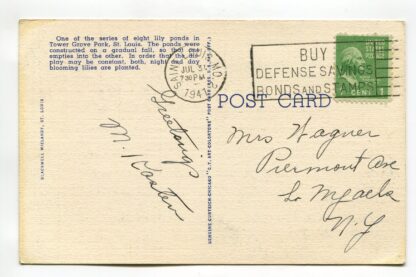 One of the series of eight lily ponds in
Tower Grove Park, St. Louis. The ponds were
constructed on a gradual fall, so that one
empties into the other. In order that the dis-
play may be constant, both, night and day
blooming lilies are planted.
SAINT LOUIS, MO.
JUL 31
7 30 PM
1941
BUY
DEFENSE SAVINGS
BONDS AND STAMPS
POST CARD
Greetings
M. Koster
Mrs Wagner
Piermont Ave
So Nyack
N.Y
BLACKWELL WIELANDY, ST. LOUIS
GENUINE CURTEICH-CHICAGO "C.T. ART-COLORTONE" POST CARD